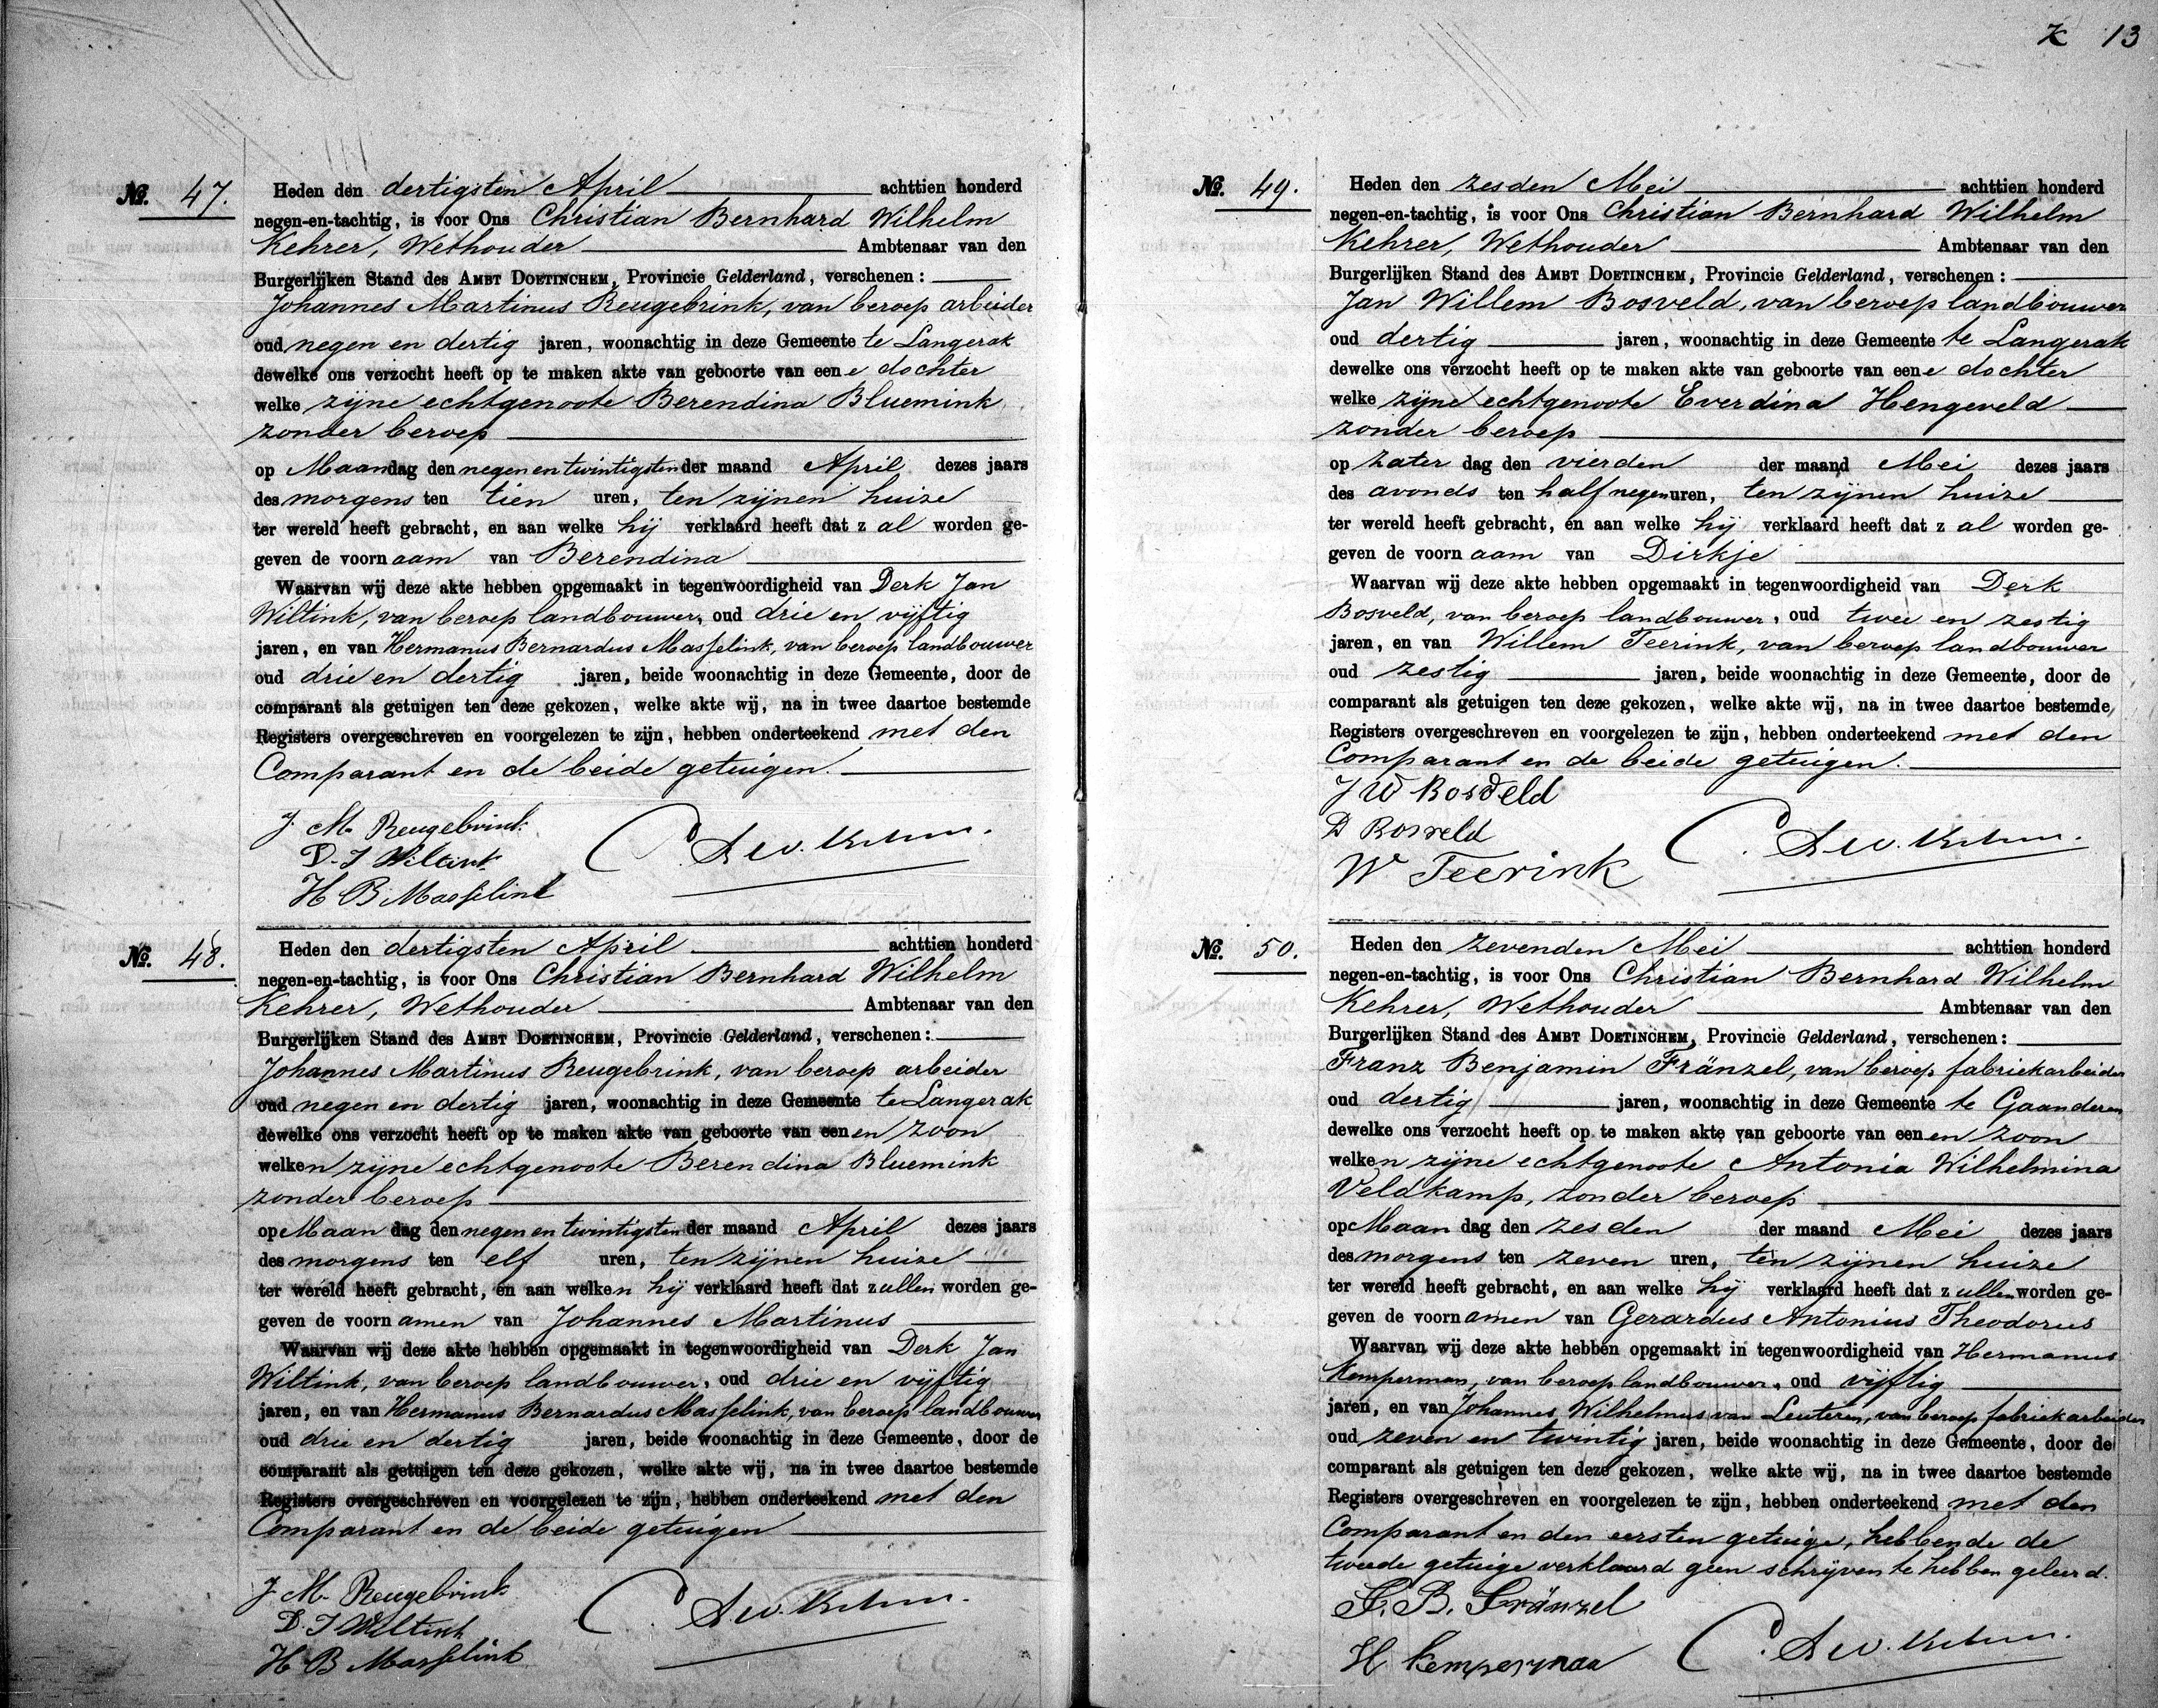 K 13
No. 47.
Heden den dertigsten April achttien honderd
negen-en-tachtig, is voor Ons Christian Bernhard Wilhelm
Kehrer, Wethouder Ambtenaar van den
Burgerlijken Stand des AMBT DOETINCHEM, Provincie Gelderland, verschenen:
Johannes Martinus Reugebrink, van beroep arbeider
oud negen en dertig jaren, woonachtig in deze Gemeente te Langerak
dewelke ons verzocht heeft op te maken akte van geboorte van eene dochter
welke zijne echtgenoote Berendina Bluemink
zonder beroep
op Maandag den negen en twintigsten der maand April dezes jaars
des morgens ten tien uren, ten zijnen huize
ter wereld heeft gebracht, en aan welke hij verklaard heeft dat zal worden ge-
geven de voornaam van Berendina
Waarvan wij deze akte hebben opgemaakt in tegenwoordigheid van Derk Jan
Wiltink, van beroep landbouwer, oud drie en vijftig
jaren, en van Hermanus Bernardus Masselink, van beroep landbouwer
oud drie en dertig jaren, beide woonachtig in deze Gemeente, door de
comparant als getuigen ten deze gekozen, welke akte wij, na in twee daartoe bestemde
Registers overgeschreven en voorgelezen te zijn, hebben onderteekend met den
Comparant en de beide getuigen.
J. M. Reugebrink
D. J Wiltink
H B Masselink
No. 48.
Heden den dertigsten April achttien honderd
negen-en-tachtig, is voor Ons Christian Bernhard Wilhelm
Kehrer, Wethouder Ambtenaar van den
Burgerlijken Stand des AMBT DOETINCHEM, Provincie Gelderland, verschenen:
Johannes Martinus Reugebrink, van beroep arbeider
oud negen en dertig jaren, woonachtig in deze Gemeente te Langerak
dewelke ons verzocht heeft op te maken akte van geboorte van eenen zoon
welken zijne echtgenoote Berendina Bluemink
zonder beroep
op Maandag den negen en twintigsten der maand April dezes jaars
des morgens ten elf uren, ten zijnen huize
ter wereld heeft gebracht, en aan welken hij verklaard heeft dat zullen worden ge-
geven de voornamen van Johannes Martinus
Waarvan wij deze akte hebben opgemaakt in tegenwoordigheid van Derk Jan
Wiltink, van beroep landbouwer, oud drie en vijftig
jaren, en van Hermanus Bernardus Masselink, van beroep landbouwer
oud drie en dertig jaren, beide woonachtig in deze Gemeente, door de
comparant als getuigen ten deze gekozen, welke akte wij, na in twee daartoe bestemde
Registers overgeschreven en voorgelezen te zijn, hebben onderteekend met den
Comparant en de beide getuigen
J. M. Reugebrink
D. J Wiltink
H B Masselink
No. 49.
Heden den zesden Mei achttien honderd
negen-en-tachtig, is voor Ons Christian Bernhard Wilhelm
Kehrer, Wethouder Ambtenaar van den
Burgerlijken Stand des AMBT DOETINCHEM, Provincie Gelderland, verschenen:
Jan Willem Bosveld, van beroep landbouwer
oud dertig jaren, woonachtig in deze Gemeente te Langerak
dewelke ons verzocht heeft op te maken akte van geboorte van eene dochter
welke zijne echtgenoote Everdina Hengeveld
zonder beroep
op Zaterdag den vierden der maand Mei dezes jaars
des avonds ten half negen uren, ten zijnen huize
ter wereld heeft gebracht, en aan welke hij verklaard heeft dat zal worden ge-
geven de voornaam van Dirkje
Waarvan wij deze akte hebben opgemaakt in tegenwoordigheid van Derk
Bosveld, van beroep landbouwer, oud twee en zestig
jaren, en van Willem Teerink, van beroep landbouwer
oud zestig jaren, beide woonachtig in deze Gemeente, door de
comparant als getuigen ten deze gekozen, welke akte wij, na in twee daartoe bestemde
Registers overgeschreven en voorgelezen te zijn, hebben onderteekend met den
Comparant en de beide getuigen.
J W Bosveld
D Bosveld
W Teerink
No. 50.
Heden den zevenden Mei achttien honderd
negen-en-tachtig, is voor Ons Christian Bernhard Wilhelm
Kehrer, Wethouder Ambtenaar van den
Burgerlijken Stand des AMBT DOETINCHEM, Provincie Gelderland, verschenen:
Franz Benjamin Fränzel, van beroep fabriekarbeider
oud dertig jaren, woonachtig in deze Gemeente te Gaanderen
dewelke ons verzocht heeft op te maken akte van geboorte van eenen zoon
welken zijne echtgenoote Antonia Wilhelmina
Veldkamp, zonder beroep
op Maandag den zesden der maand Mei dezes jaars
des morgens ten zeven uren, ten zijnen huize
ter wereld heeft gebracht, en aan welke hij verklaard heeft dat zullen worden ge-
geven de voornamen van Gerardus Antonius Theodorus
Waarvan wij deze akte hebben opgemaakt in tegenwoordigheid van Hermanus
Kemperman, van beroep landbouwer, oud vijftig
jaren, en van Johannes Wilhelmus van Leuteren, van beroep fabriekarbeider
oud zeven en twintig jaren, beide woonachtig in deze Gemeente, door de
comparant als getuigen ten deze gekozen, welke akte wij, na in twee daartoe bestemde
Registers overgeschreven en voorgelezen te zijn, hebben onderteekend met den
Comparant en den eersten getuige, hebbende de
tweede getuige verklaard geen schrijven te hebben geleerd.
F. B. Fränzel
H Kemperman